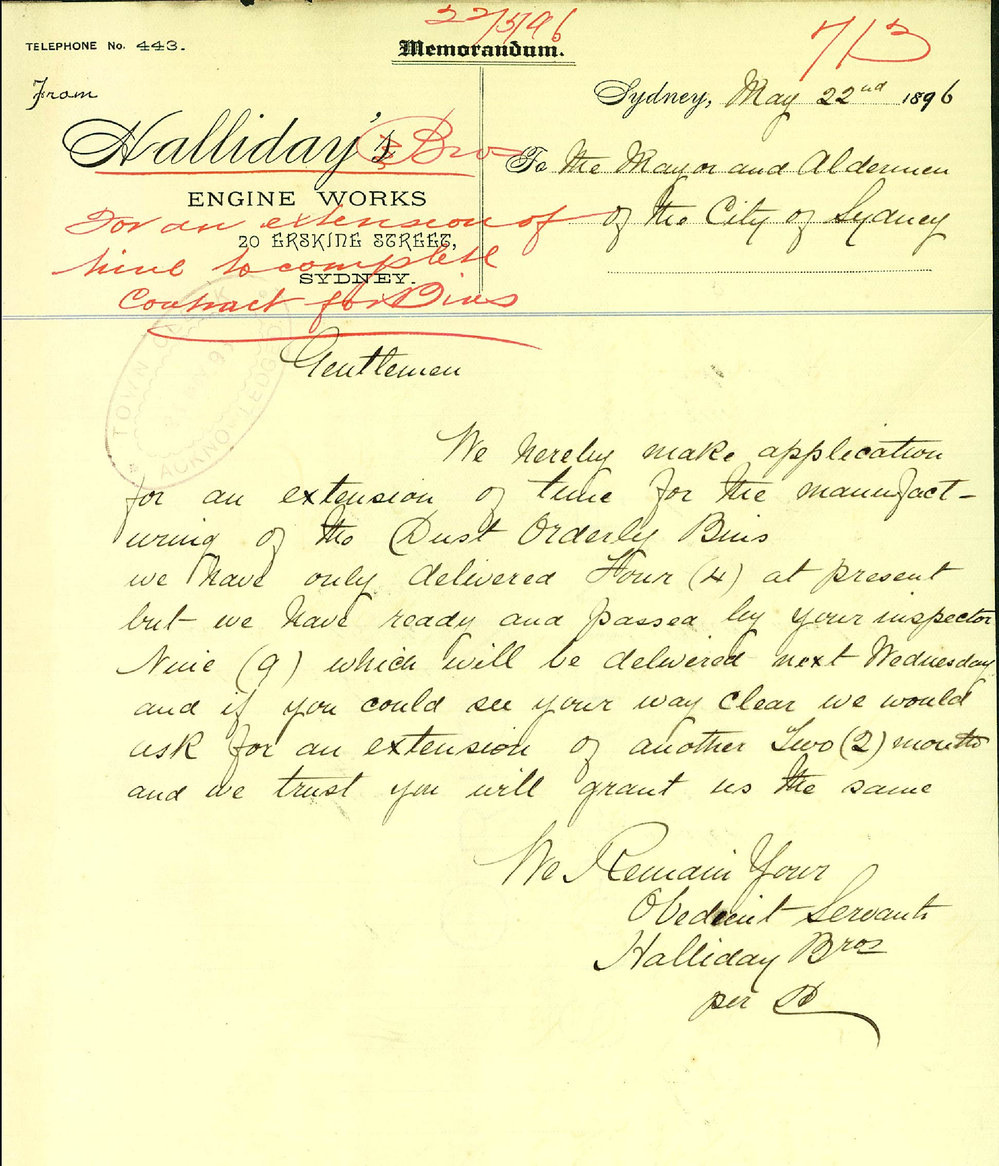 22/5/96
713
TELEPHONE No. 443.
Memorandum.
From
Sydney, May 22nd 1896
Halliday's Bros
To the Mayor and Aldermen
ENGINE WORKS
of the City of Sydney
For an extension of
20 ERSKINE STREET,
time to complete
SYDNEY.
Contract for Bins
TOWN CLERK
ACKNOWLEDGED
Gentlemen
We hereby make application
for an extension of time for the manufact-
uring of the Dust Orderly Bins
we have only delivered Four (4) at present
but we have ready and passed by your inspector
Nine (9) which will be delivered next Wednesday
and if you could see your way clear we would
ask for an extension of another Two (2) months
and we trust you will grant us the same
We Remain Your
Obedient Servants
Halliday Bros
per